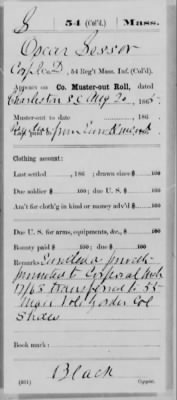 S 54 (Col'd.) Mass.
Oscar Sessor
Corpl Co. D, 54 Reg't Mass. Inf. (Col'd.)
Appears on Co. Muster-out Roll, dated
Charleston S.C. Aug 20, 1865
Muster-out to date , 186
Last paid to from
Clothing account:
Last settled , 186 ; drawn since $ 100
Due soldier $ 100; due U. S. $ 100
Am't for cloth'g in kind or money adv'd $ 100
Due U. S. for arms, equipments, &c., $ 100
Bounty paid $ 100; due $ 100
Remarks: Enlisted private
promoted to Corporal
17/65 transferred to 55"
Mass Vol order Col
Book mark:
Black
(861) Copyist.